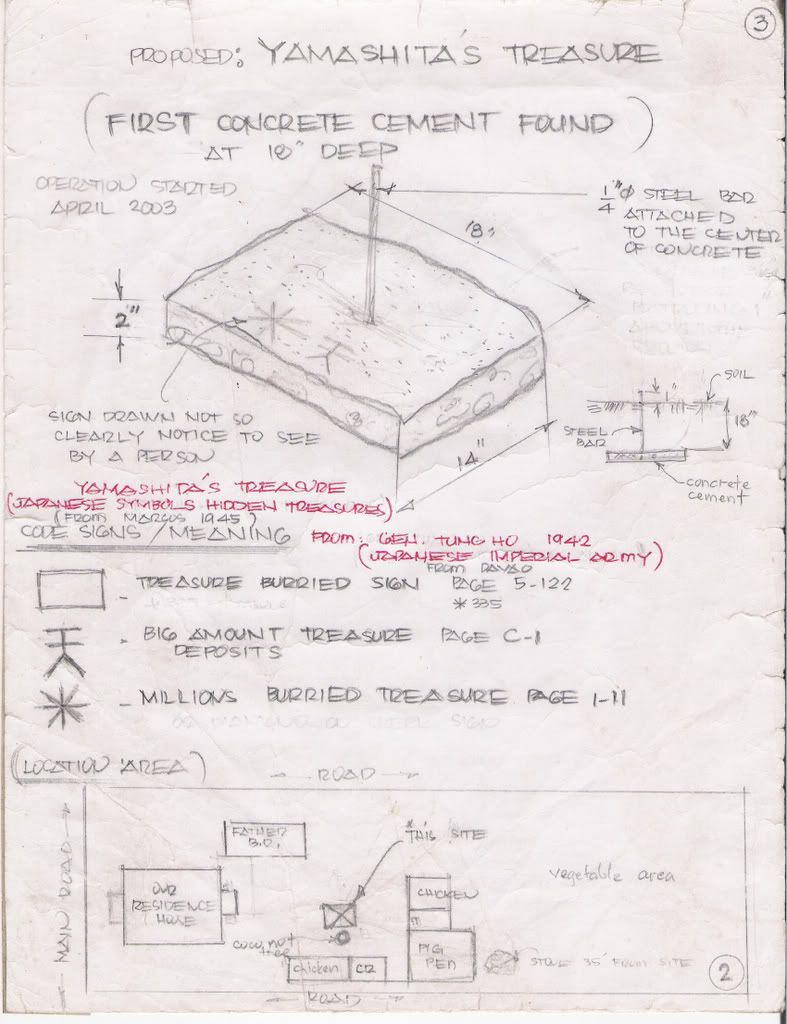 3
PROPOSED: YAMASHITA'S TREASURE
(FIRST CONCRETE CEMENT FOUND)
AT 18" DEEP
OPERATION STARTED
APRIL 2003
1/4"Ø STEEL BAR
ATTACHED
TO THE CENTER
OF CONCRETE
18"
2"
14"
SIGN DRAWN NOT SO
CLEARLY NOTICE TO SEE
BY A PERSON
1"
SOIL
18"
STEEL
BAR
concrete
cement
YAMASHITA'S TREASURE
(JAPANESE SYMBOLS HIDDEN TREASURES)
(FROM MARCOS 1945)
CODE SIGNS / MEANING
FROM: GEN. TUNG HO 1942
(JAPANESE IMPERIAL ARMY)
FROM DAVAO
- TREASURE BURRIED SIGN PAGE 5-122
*335
- BIG AMOUNT TREASURE PAGE C-1
DEPOSITS
- MILLIONS BURRIED TREASURE PAGE 1-11
(LOCATION AREA)
ROAD
MAIN ROAD
FATHER
B.R.
* THIS SITE
OUR
RESIDENCE
HOUSE
CHICKEN
vegetable area
coconut
tree
chicken
CR
PIG
PEN
STONE 35' FROM SITE
2
ROAD